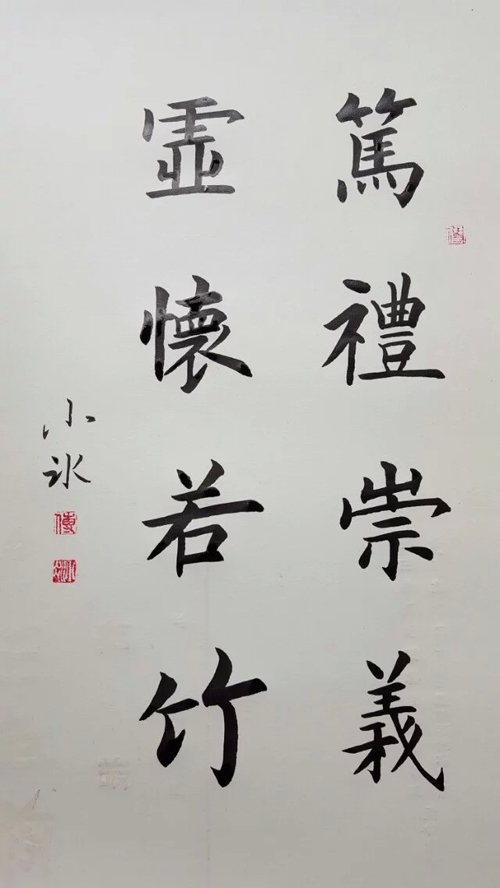 篤禮崇義
虛懷若竹
小冰